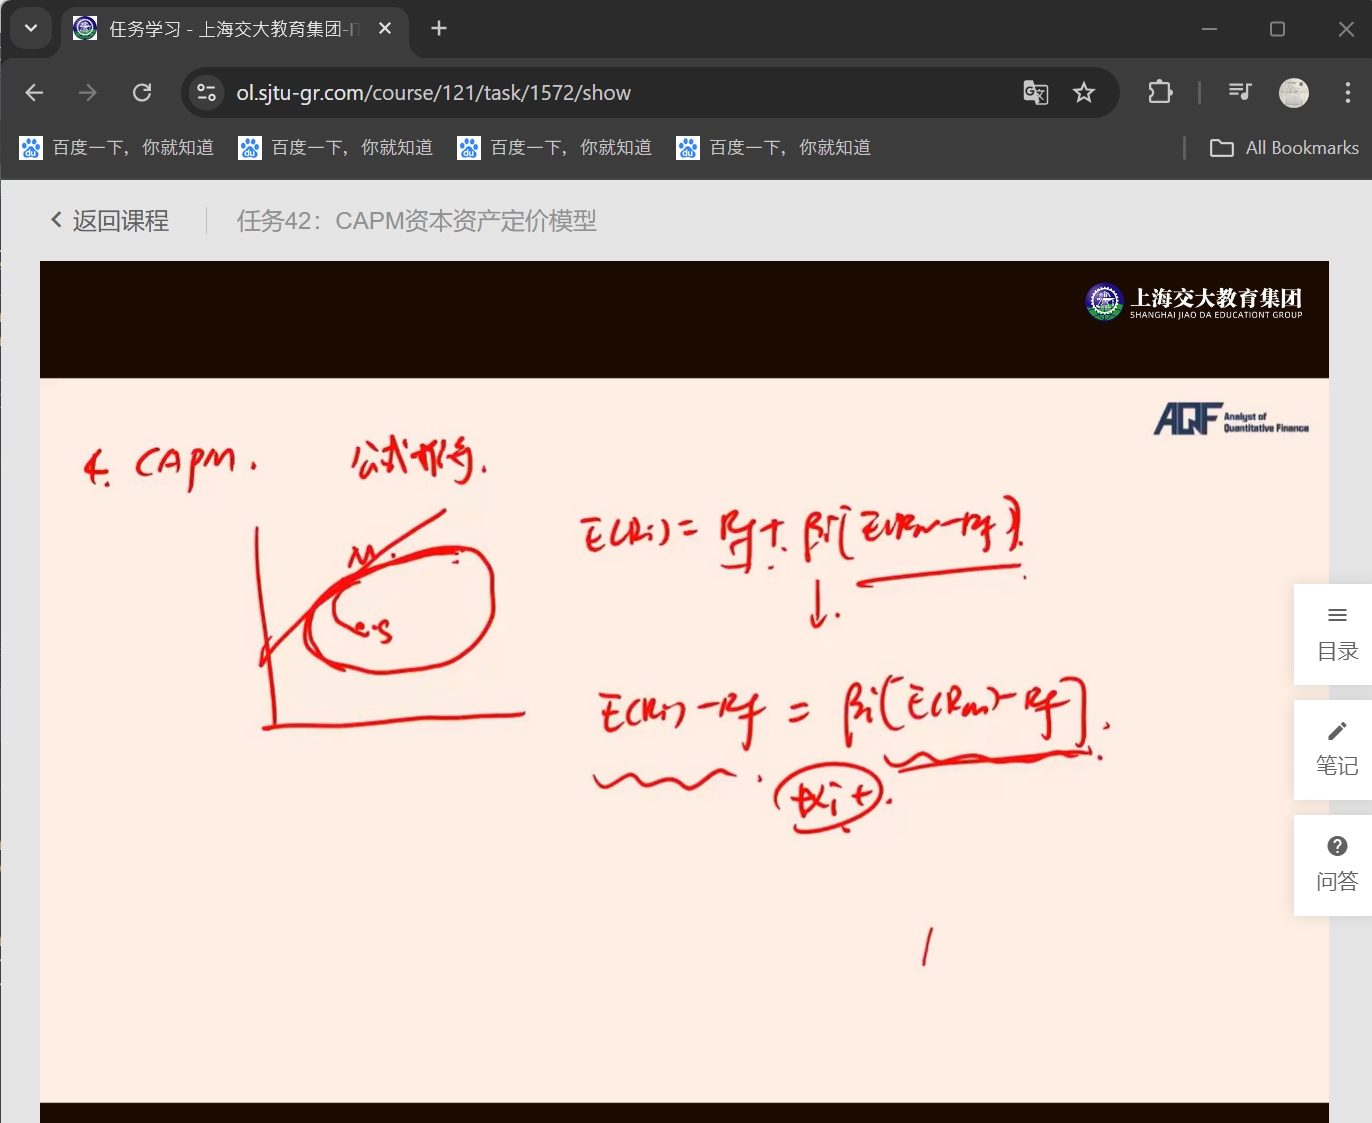 任务学习 - 上海交大教育集团-I
ol.sjtu-gr.com/course/121/task/1572/show
百度一下，你就知道 百度一下，你就知道 百度一下，你就知道 百度一下，你就知道 All Bookmarks
返回课程 任务42：CAPM资本资产定价模型
上海交大教育集团
SHANGHAI JIAO DA EDUCATIONT GROUP
AQF Analyst of
Quantitative Finance
4. CAPM. 公式推导.
E(Ri) = Rf + βi[E(Rm-Rf)].
M.
E(Ri) -Rf = βi[E(Rm)-Rf].
αi +
目录
笔记
问答